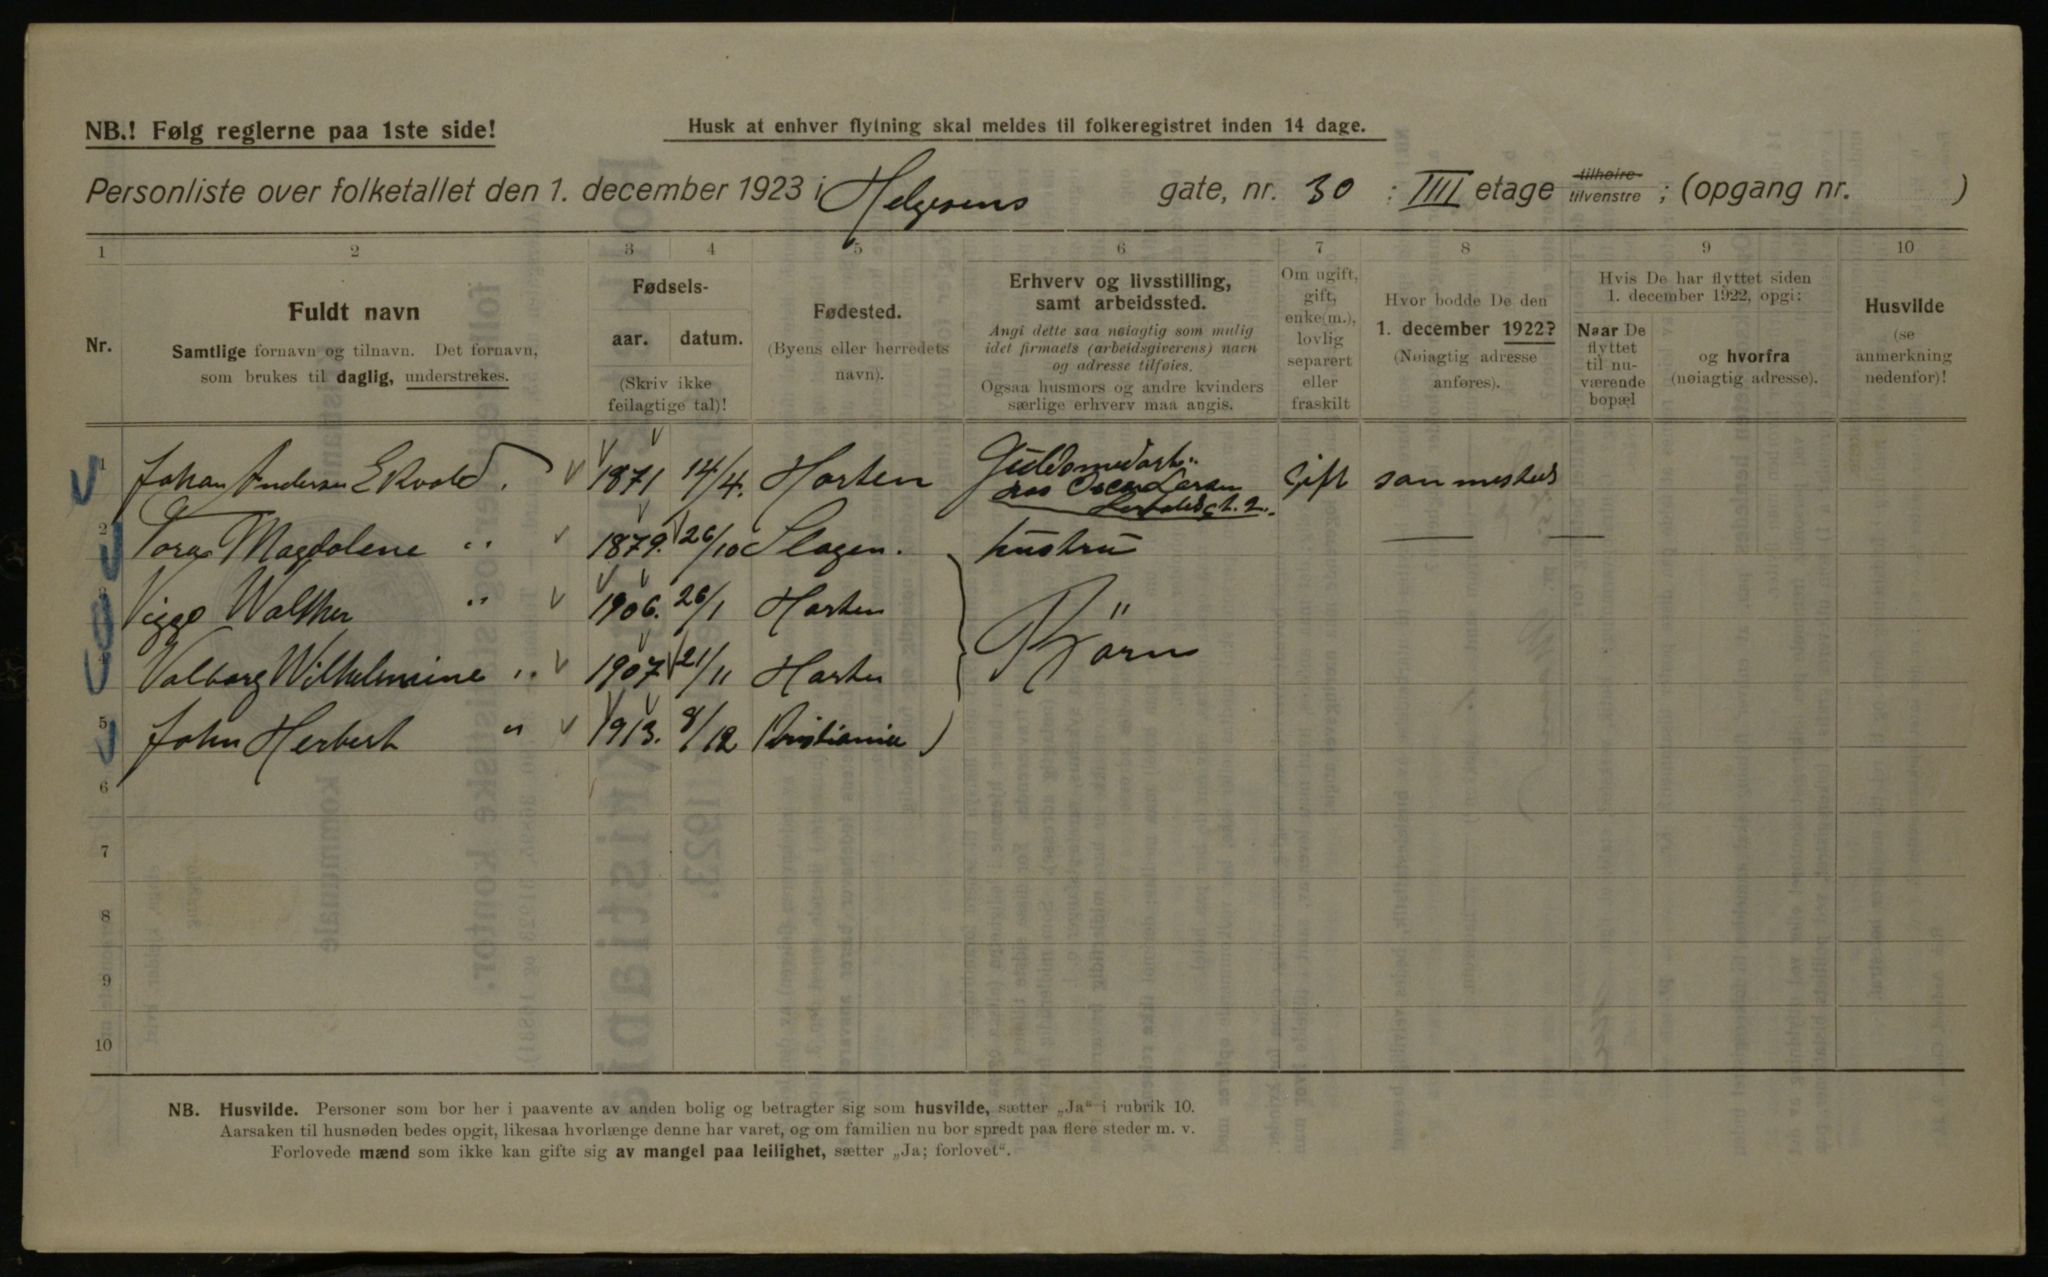 NB.! Følg reglerne paa 1ste side!
Husk at enhver flytning skal meldes til folkeregistret inden 14 dage.
Personliste over folketallet den 1. december 1923 i Helgesens gate, nr. 30 : III etage tilhøire tilvenstre ; (opgang nr. )
1 2 3 4 5 6 7 8 9 10
Nr.
Fuldt navn
Samtlige fornavn og tilnavn. Det fornavn,
som brukes til daglig, understrekes.
Fødsels-
aar. datum.
(Skriv ikke
feilagtige tal)!
Fødested.
(Byens eller herredets
navn).
Erhverv og livsstilling,
samt arbeidssted.
Angi dette saa nøiagtig som mulig
idet firmaets (arbeidsgiverens) navn
og adresse tilføies.
Ogsaa husmors og andre kvinders
særlige erhverv maa angis.
Om ugift,
gift,
enke(m.),
lovlig
separert
eller
fraskilt
Hvor bodde De den
1. december 1922?
(Nøiagtig adresse
anføres).
Hvis De har flyttet siden
1. december 1922, opgi:
Naar De
flyttet
til nu-
værende
bopæl
og hvorfra
(nøiagtig adresse).
Husvilde
(se
anmerkning
nedenfor)!
1 Johan Andersen Ekvold. 1871 14/4. Horten Gift sammesteds
2 Tora Magdalene " 1879. 26/10 Slagen. hustru
3 Viggo Walther " 1906. 26/1 Horten
Börn
4 Valborg Wilhelmine " 1907 21/11 Horten
5 John Herbert " 1913. 8/12 Kristiania
6
7
8
9
10
NB. Husvilde. Personer som bor her i paavente av anden bolig og betragter sig som husvilde, sætter „Ja" i rubrik 10.
Aarsaken til husnøden bedes opgit, likesaa hvorlænge denne har varet, og om familien nu bor spredt paa flere steder m. v.
Forlovede mænd som ikke kan gifte sig av mangel paa leilighet, sætter „Ja; forlovet".